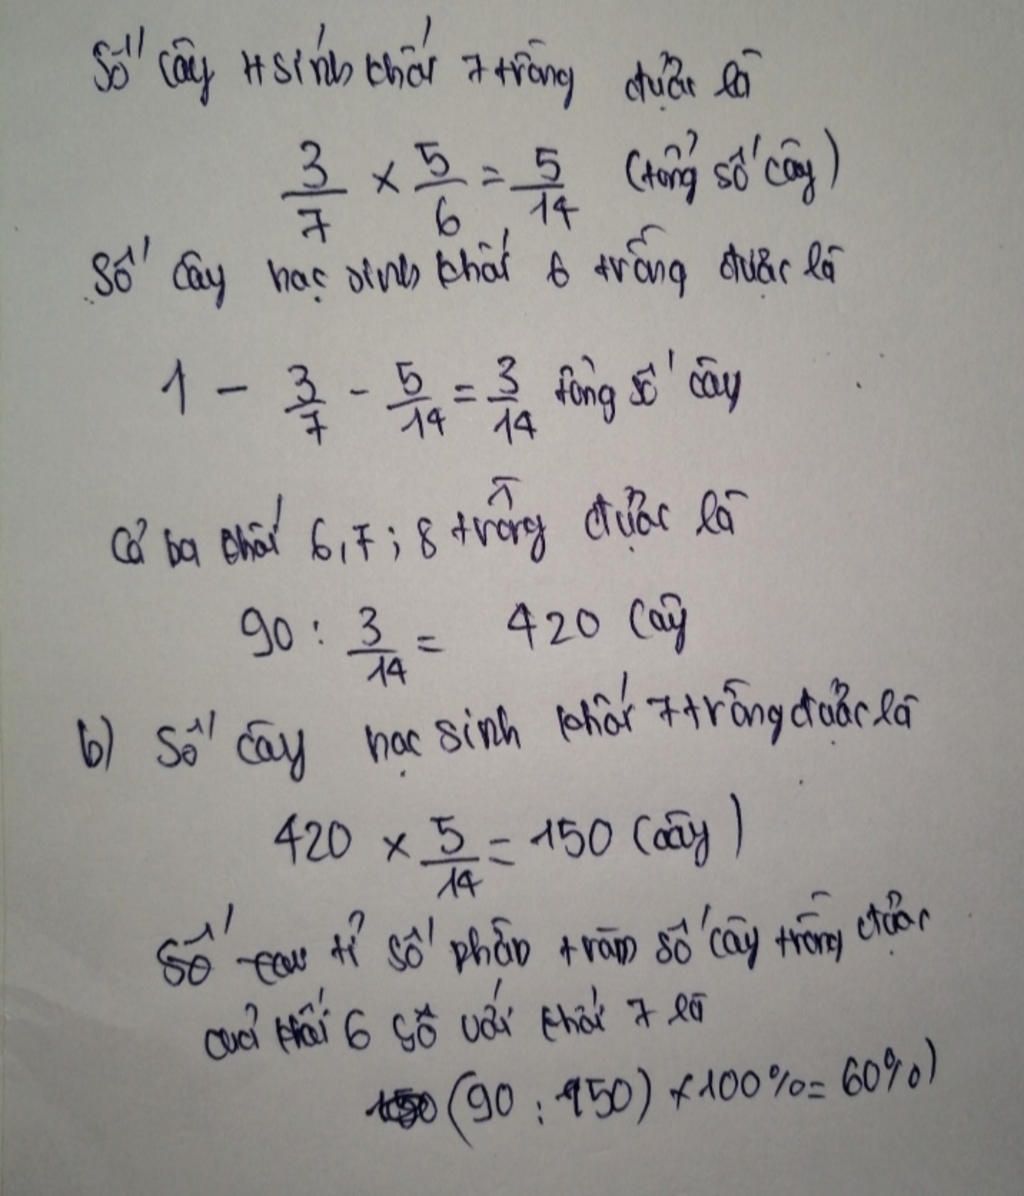 Số cây H sinh khối 7 trồng được là
3/7 × 5/6 = 5/14 (tổng số cây)
Số cây học sinh khối 6 trồng được là
1 - 3/7 - 5/14 = 3/14 tổng số cây
Cả ba khối 6,7;8 trồng được là
90 : 3/14 = 420 cây
b) Số cây học sinh khối 7 trồng được là
420 × 5/14 = 150 (cây)
Số tỉ số phần trăm số cây trồng được
của khối 6 số với khối 7 là
(90 : 150) × 100% = 60%)